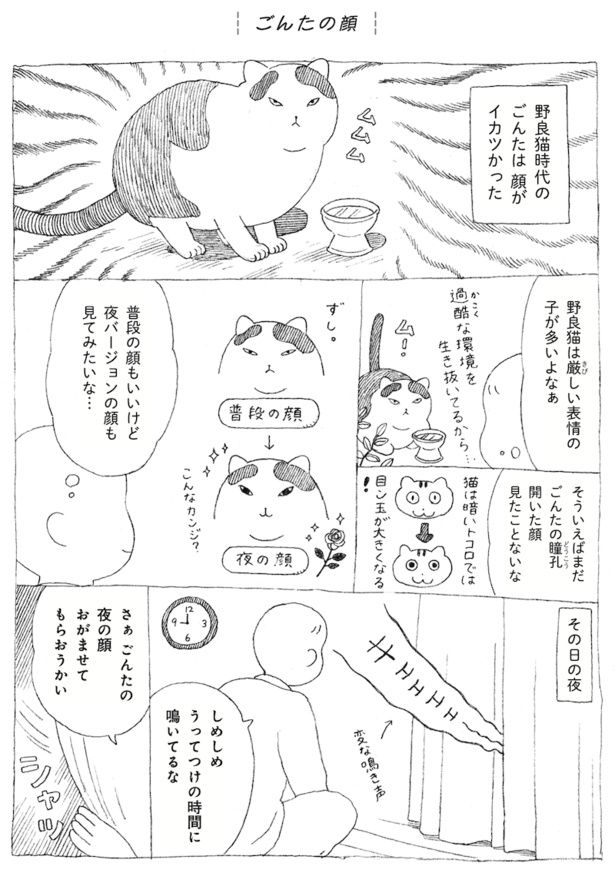 ごんたの顔
野良猫時代の
ごんたは 顔が
イカツかった
ムムム
野良猫は厳しい表情の
子が多いよなぁ
きび
過酷な環境を
かこく
生き抜いてるから…
ム！
そういえばまだ
ごんたの瞳孔
どうこう
開いた顔
見たことないな
猫は暗いトコロでは
目ン玉が大きくなる
！
ずし。
普段の顔
夜の顔
こんなカンジ？
普段の顔もいいけど
夜バージョンの顔も
見てみたいな…
その日の夜
変な鳴き声
12
9
3
6
しめしめ
うってつけの時間に
鳴いてるな
さぁ ごんたの
夜の顔
おがませて
もらおうかい
シャッ